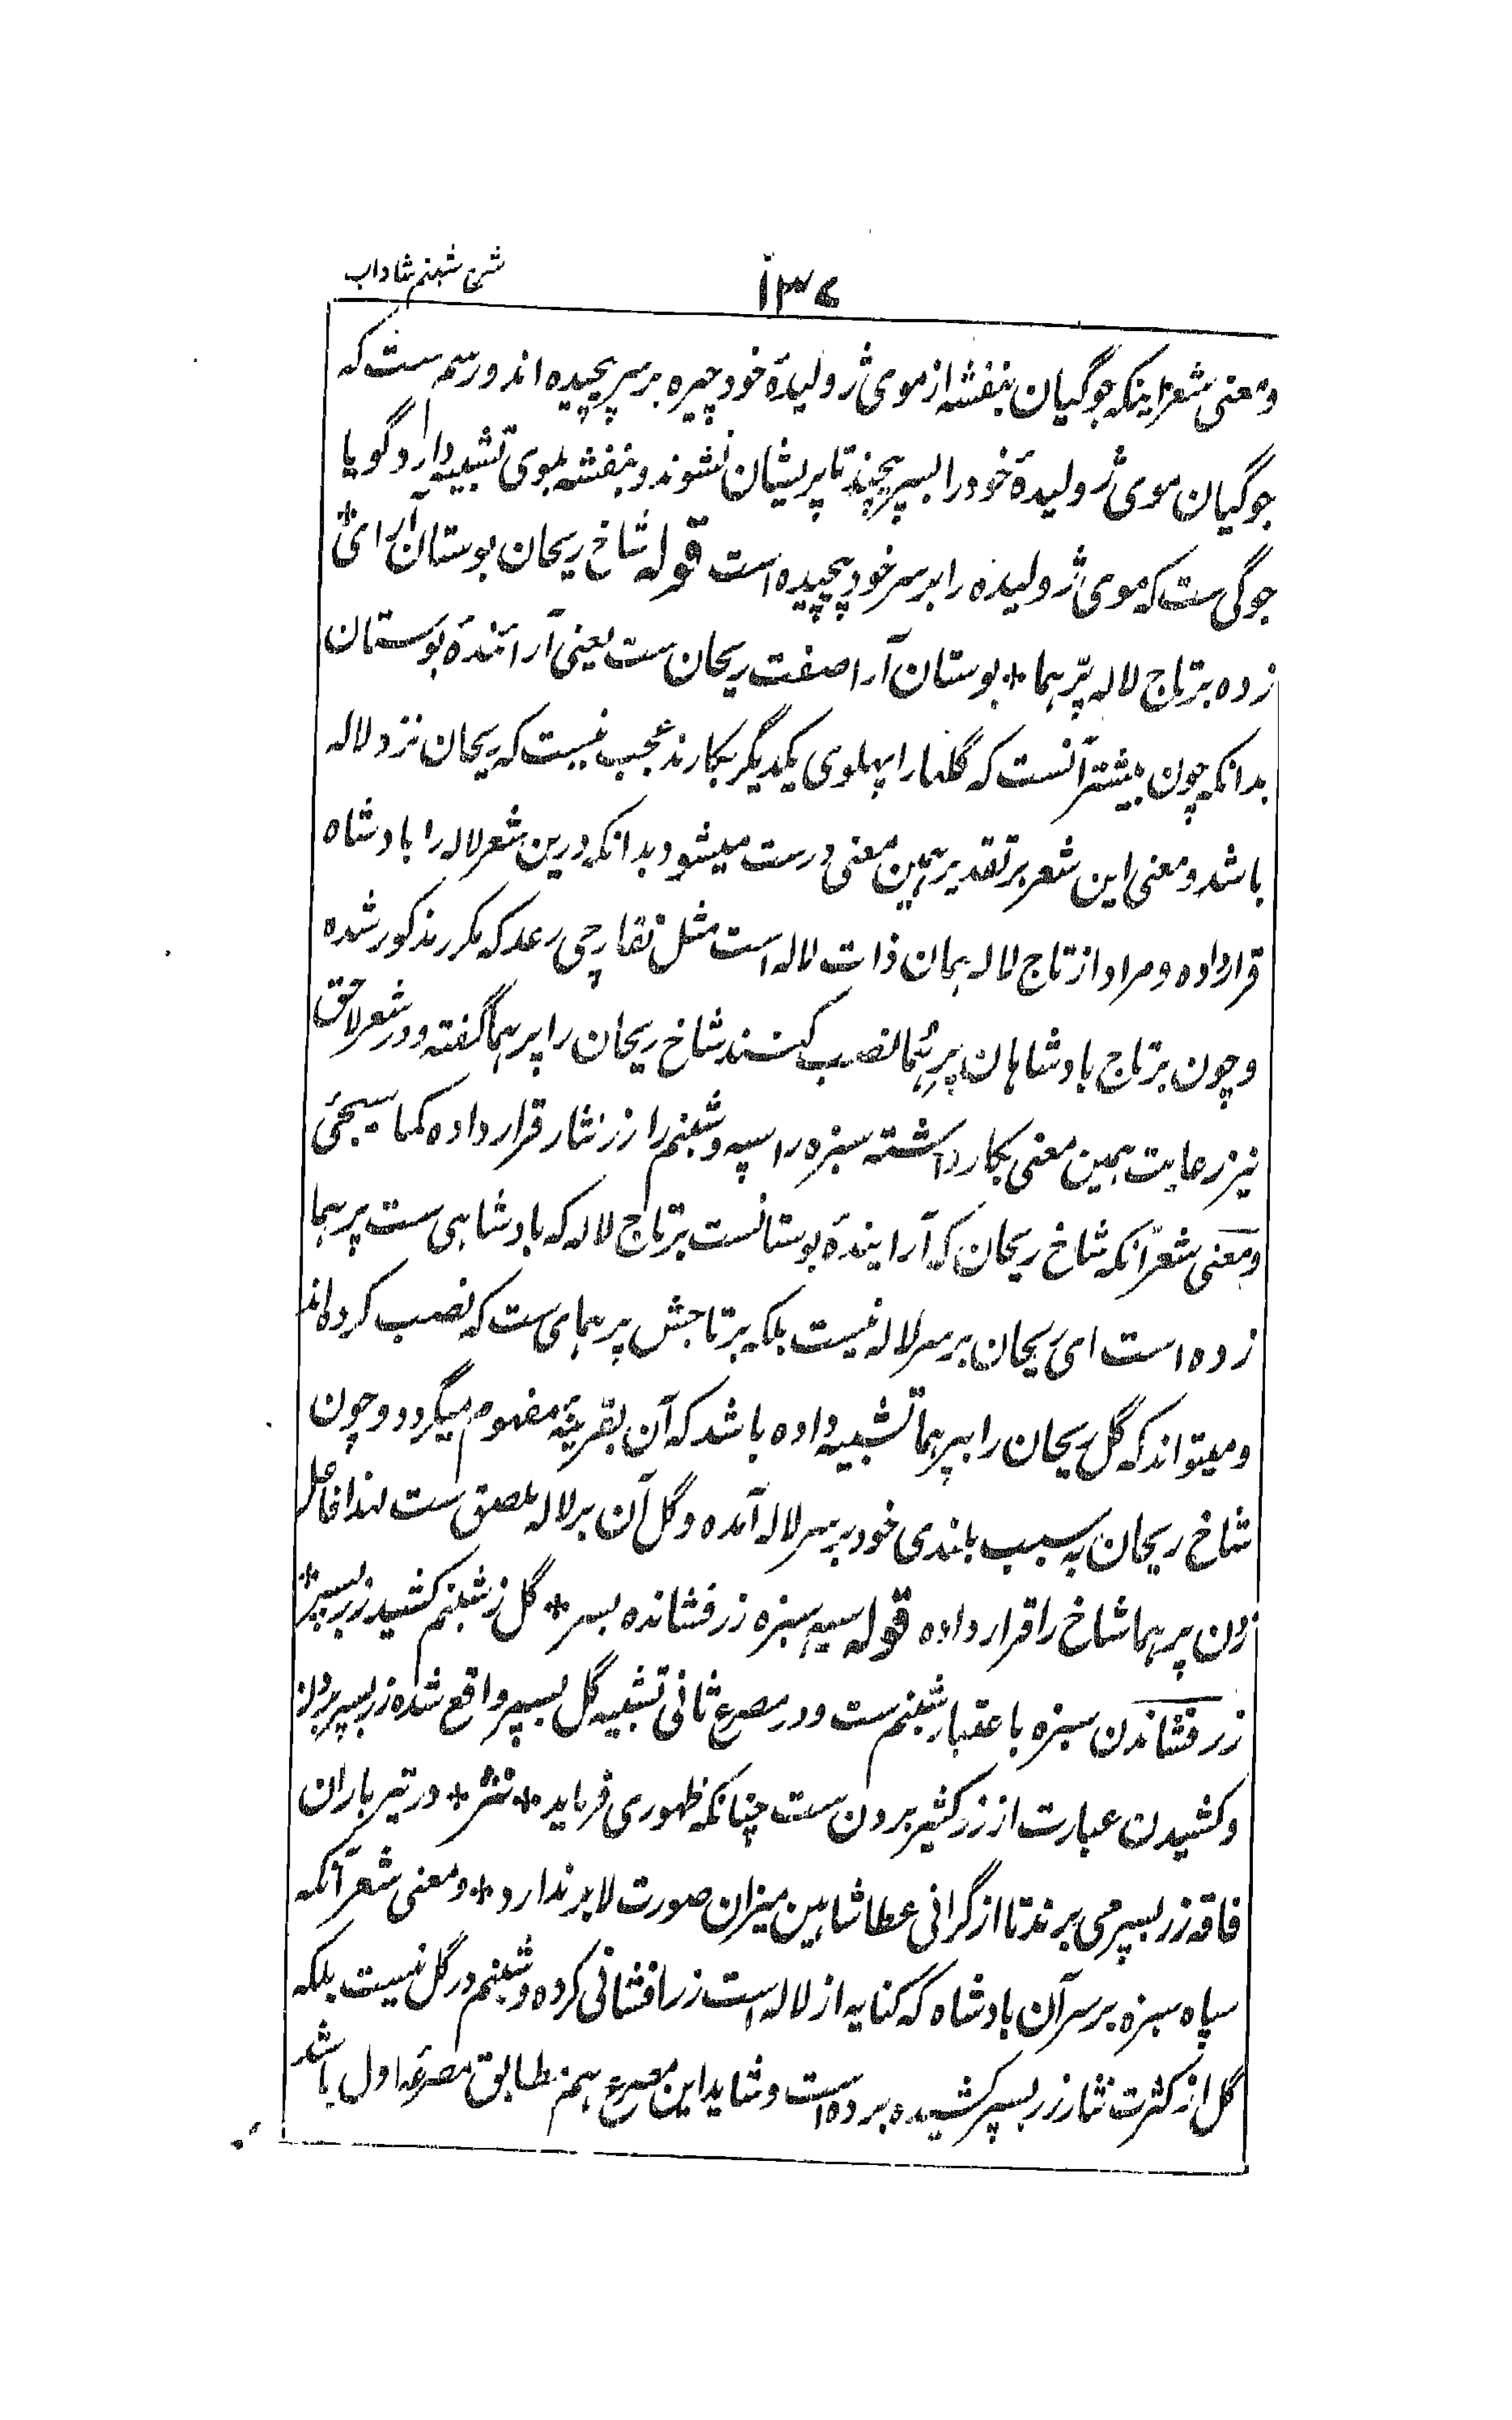 ۱۳۴
شرح شبنم شاداب
ومعنی شعر اینکه جوگیان بنفشه از موی ژولیدهٔ خود چیره بر سر پیچیده اند ورسم ست که
جوگیان موی ژولیدهٔ خود را بسر پیچند تا پریشان نشوند وبنفشه بموی تشبیه دارد گویا
جوگی ست که موی ژولیده را بر سر خود پیچیده است قوله شاخ ریحان بوستان آرای *
زده بر تاج لاله پرّ هما * بوستان آرا صفت ریحان ست یعنی آرائندهٔ بوستان
بدانکه چون بیشتر آنست که گلها را پهلوی یکدیگر بکارند عجب نیست که ریحان نزد لاله
باشد ومعنی این شعر بر تقدیر همین معنی درست میشود بدانکه درین شعر لاله را بادشاه
قرار داده ومراد از تاج لاله همان ذات لاله است مثل نقارچی رعد که مکرر مذکور شده
وچون بر تاج بادشاهان پرِ هُما نصب کنند شاخ ریحان را پر هما گفته ودر شعر لاحق
نیز رعایت همین معنی بکار داشته سبزه را سپه وشبنم را زر نثار قرار داده کما سیجئ
ومعنی شعر آنکه شاخ ریحان که آرایندهٔ بوستانست بر تاج لاله که بادشاهی ست پر هما
زده است ای ریحان بر سر لاله نیست بلکه بر تاجش پر همای ست که نصب کرده اند
ومیتواند که گل ریحان را بپر هما تشبیه داده باشد که آن بقرینه مفهوم میگردد وچون
شاخ ریحان به سبب بلندی خود بر سر لاله آمده وگل آن بر لاله ملصق ست لهذا فاعل
زدن پر هما شاخ را قرار داده قوله سپه سبزه زر فشانده بسر * گل ز شبنم کشید زر بسپر *
زر فشاندن سبزه باعتبار شبنم ست ودر مصرع ثانی تشبیه گل بسپر واقع شده زر بسپر بردن
وکشیدن عبارت از زر کثیر بردن ست چنانکه ظهوری فرماید * نثر * در تیر باران
فاقه زر بسپر می برند تا از گرانی عطا شاهین میزان صورت لا بر ندارد * ومعنی شعر آنکه
سپاه سبزه بر سر آن بادشاه که کنایه از لاله است زر افشانی کرده وشبنم در گل نیست بلکه
گل از کثرت نثار زر بسپر کشیده برده است وشاید این مصرع هم مطابق مصرعه اول باشد